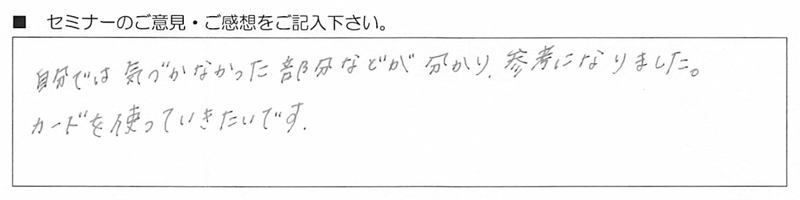 ■ セミナーのご意見・ご感想をご記入下さい。
自分では気づかなかった部分などが分かり、参考になりました。
カードを使っていきたいです.